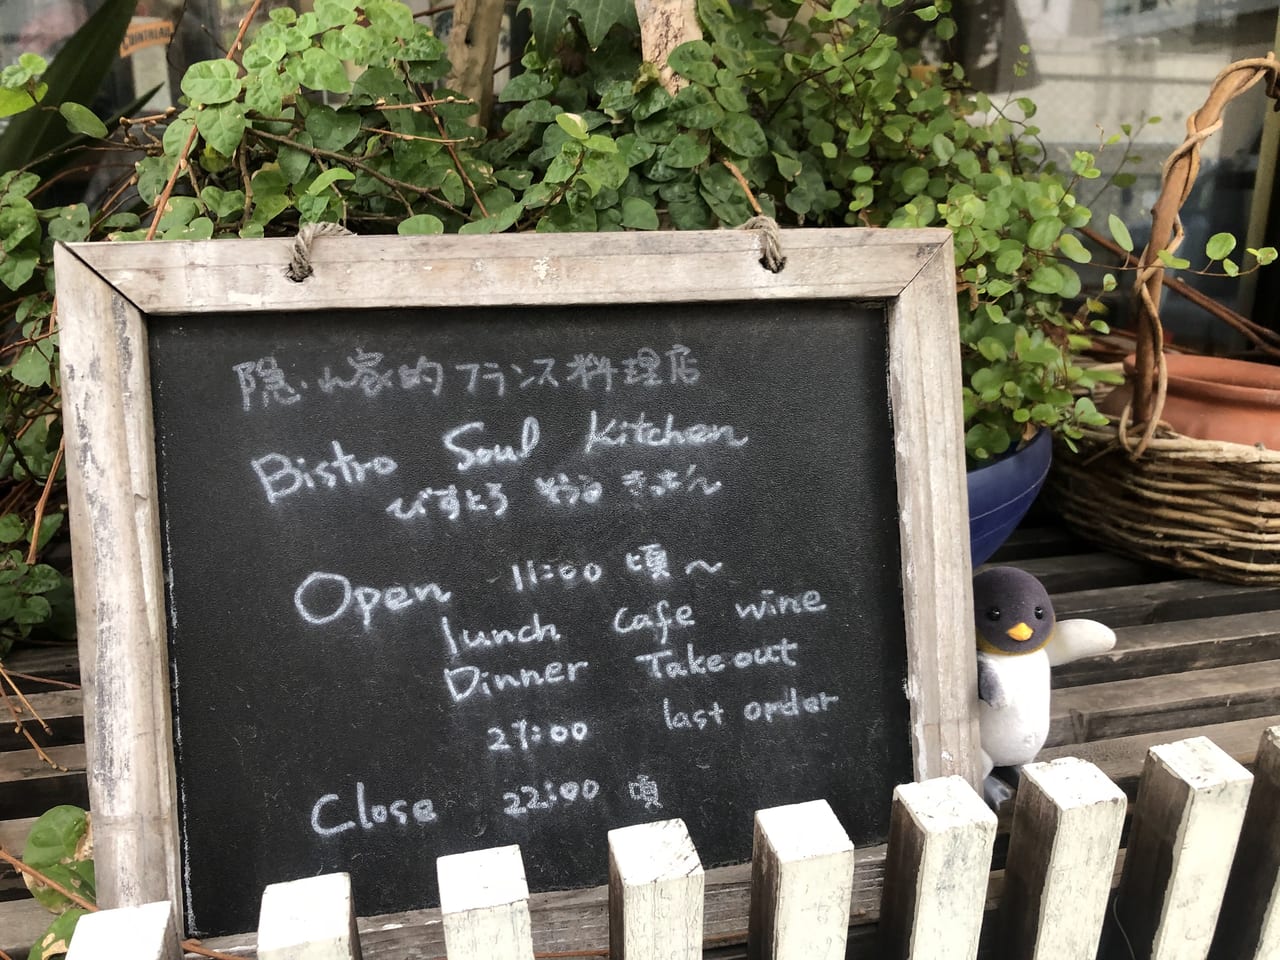 隠れ家的フランス料理店
Bistro Soul Kitchen
びすとろ そうる きっちん
Open 11:00 頃～
lunch cafe wine
Dinner Takeout
21:00 last order
Close 22:00 頃